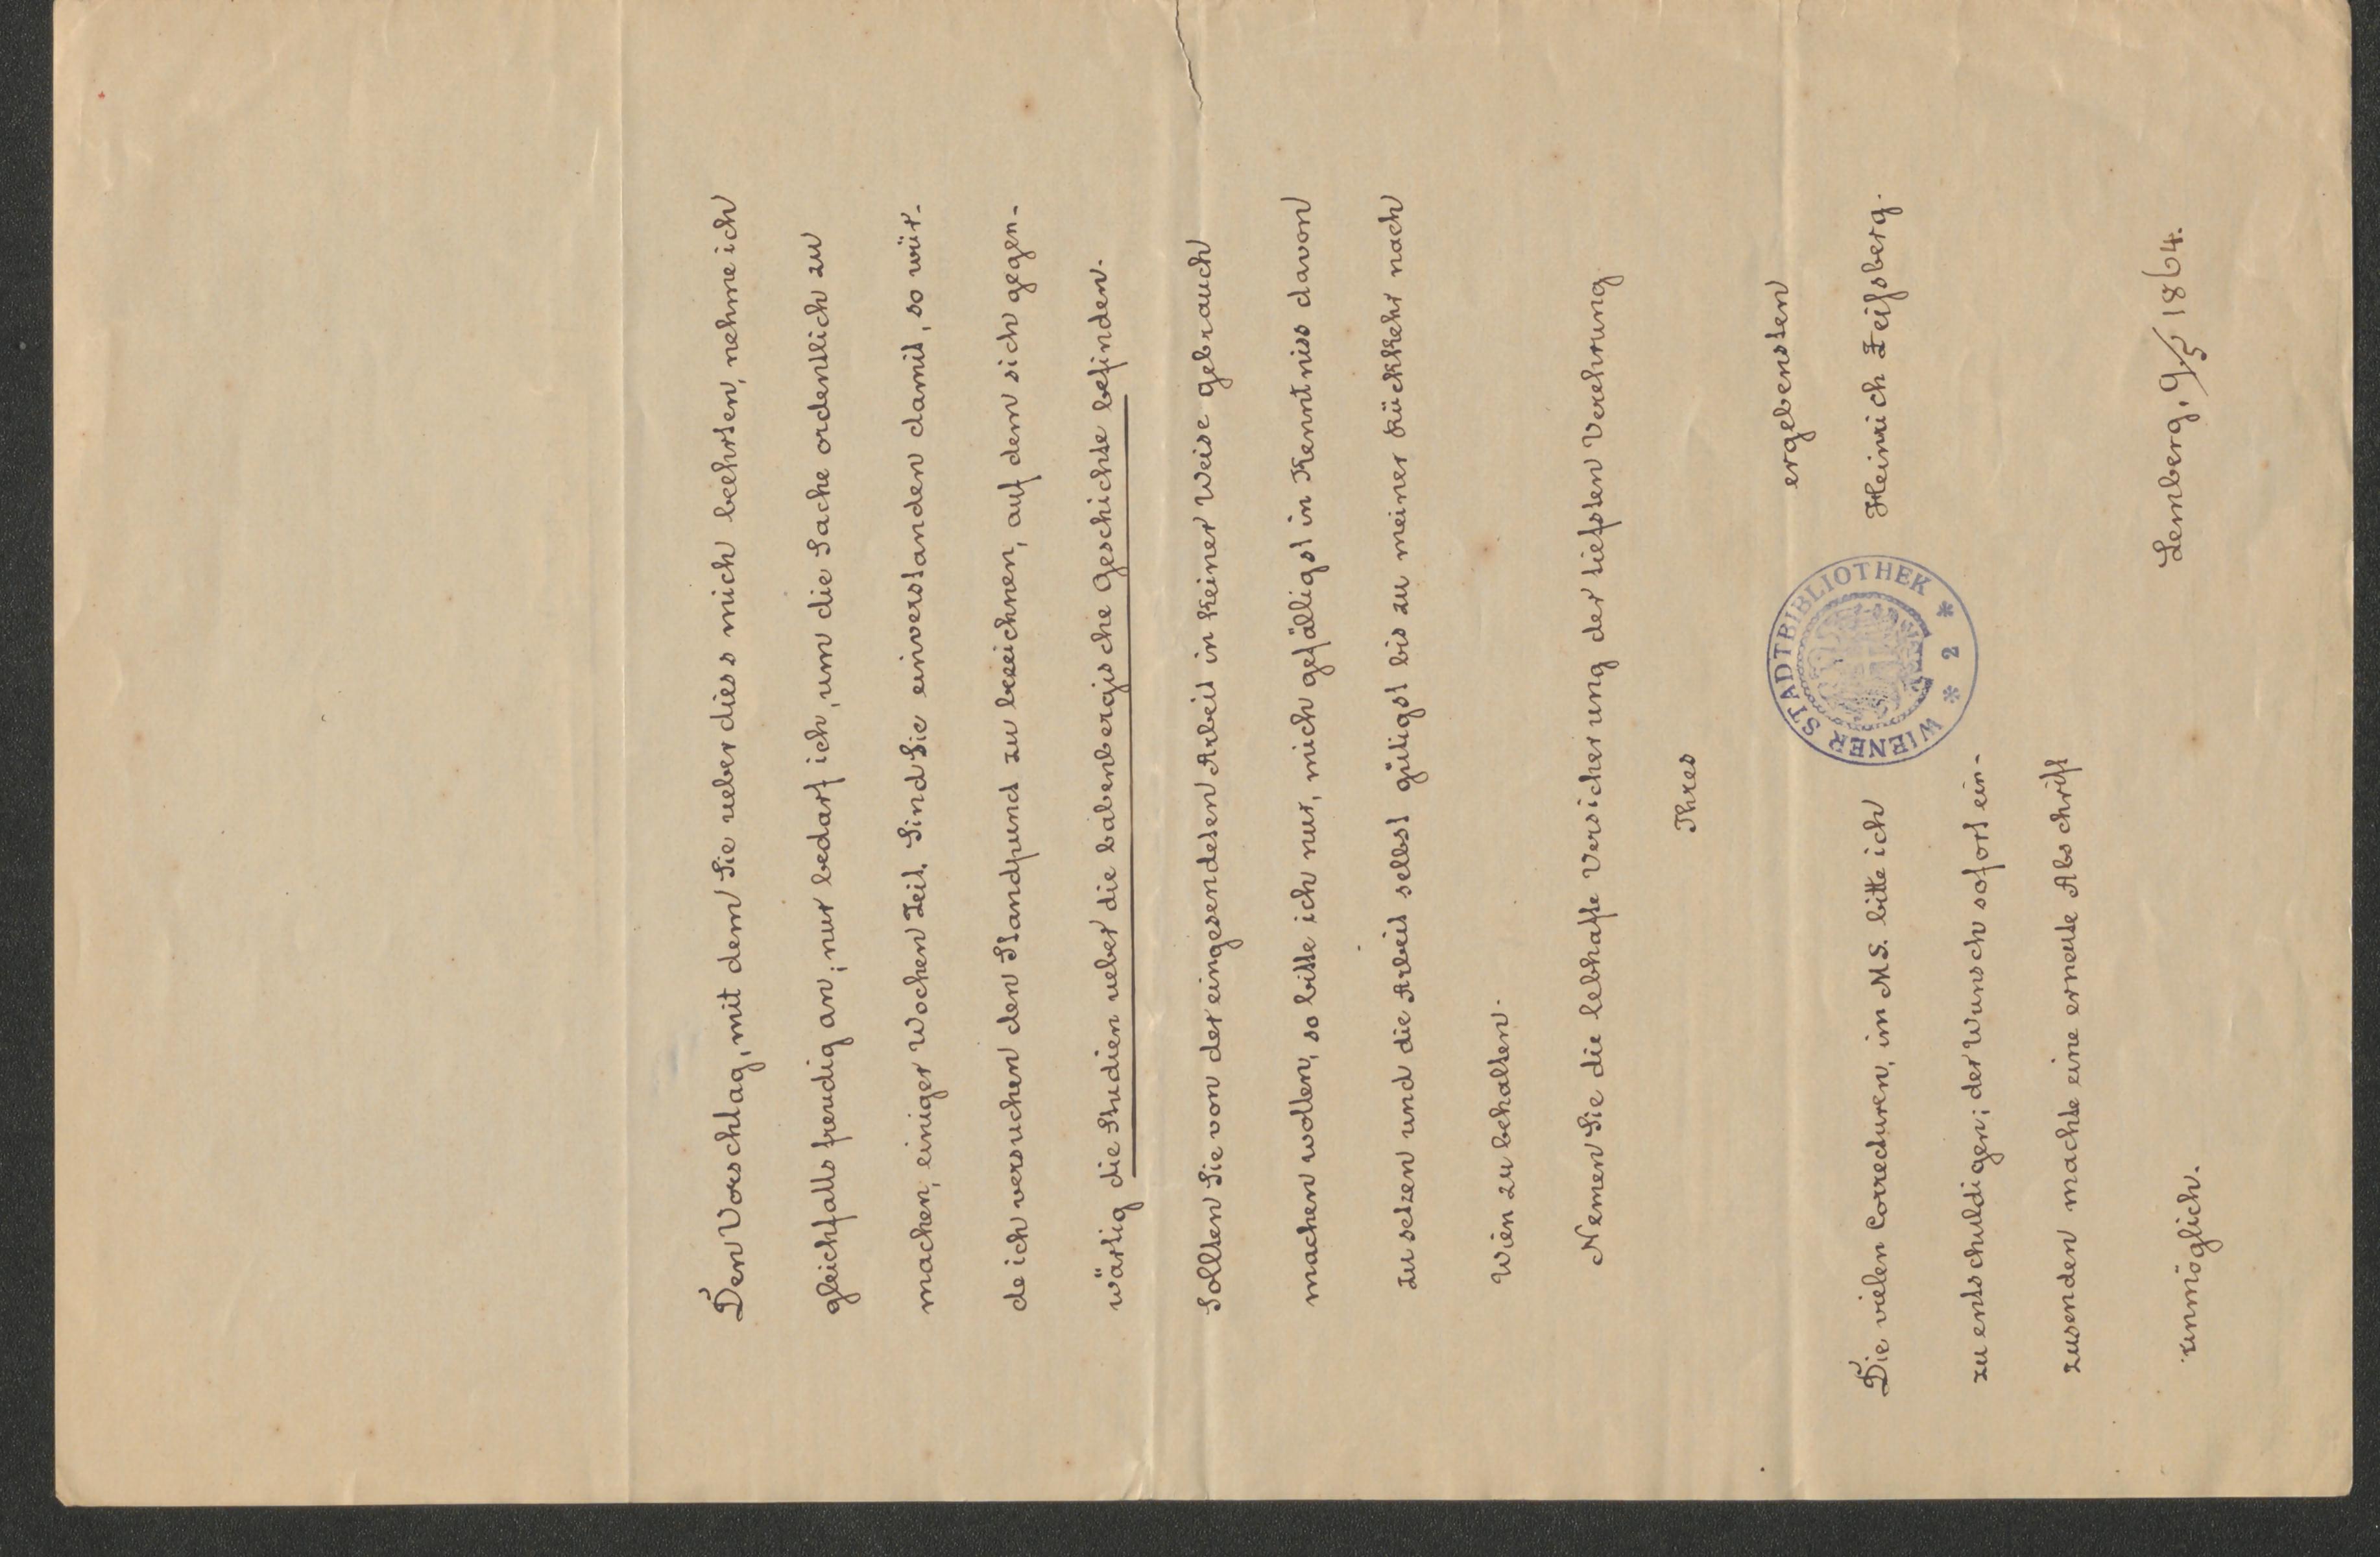 Den Vorschlag, mit dem Sie ueberdies mich beehrten, nehme ich
gleichfalls freudig an; nur bedarf ich, um die Sache ordentlich zu
machen, einiger Wochen Zeit. Sind Sie einverstanden damit, so wür-
de ich versuchen den Standpunct zu bezeichnen, auf dem sich gegen-
wärtig die Studien ueber die babenbergische Geschichte befinden.
Sollten Sie von der eingesendeten Arbeit in keiner Weise Gebrauch
machen wollen, so bitte ich nur, mich gefälligst in Kenntniss davon
zu setzen und die Arbeit selbst gütigst bis zu meiner Rückkehr nach
Wien zu behalten.
Nemen Sie die lebhafte Versicherung der tiefsten Verehrung
Ihres
ergebensten
Heinrich Zeissberg.
WIENER STADTBIBLIOTHEK * 2 *
Die vielen Correcturen, im MS. bitte ich
zu entschuldigen; der Wunsch sofort ein-
zusenden machte eine erneute Abschrift
unmöglich.
Lemberg, 9/5 1864.